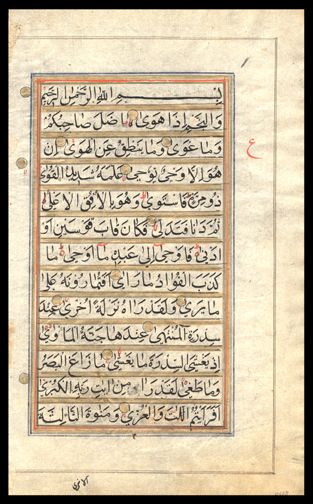 بسم الله الرحمن الرحيم
والنجم اذا هوى ما ضل صاحبكم
وما غوى وما ينطق عن الهوى ان
هو الا وحى يوحى علمه شديد القوى
ذو مرة فاستوى وهو بالافق الاعلى
ثم دنا فتدلى فكان قاب قوسين او
ادنى فاوحى الى عبده ما اوحى ما
كذب الفؤاد ما راى افتمارونه على
ما يرى ولقد راه نزلة اخرى عند
سدرة المنتهى عندها جنة الماوى
اذ يغشى السدرة ما يغشى ما زاغ البصر
وما طغى لقد راى من ايت ربه الكبرى
افرايتم اللت والعزى ومنوة الثالثة
الاخرى